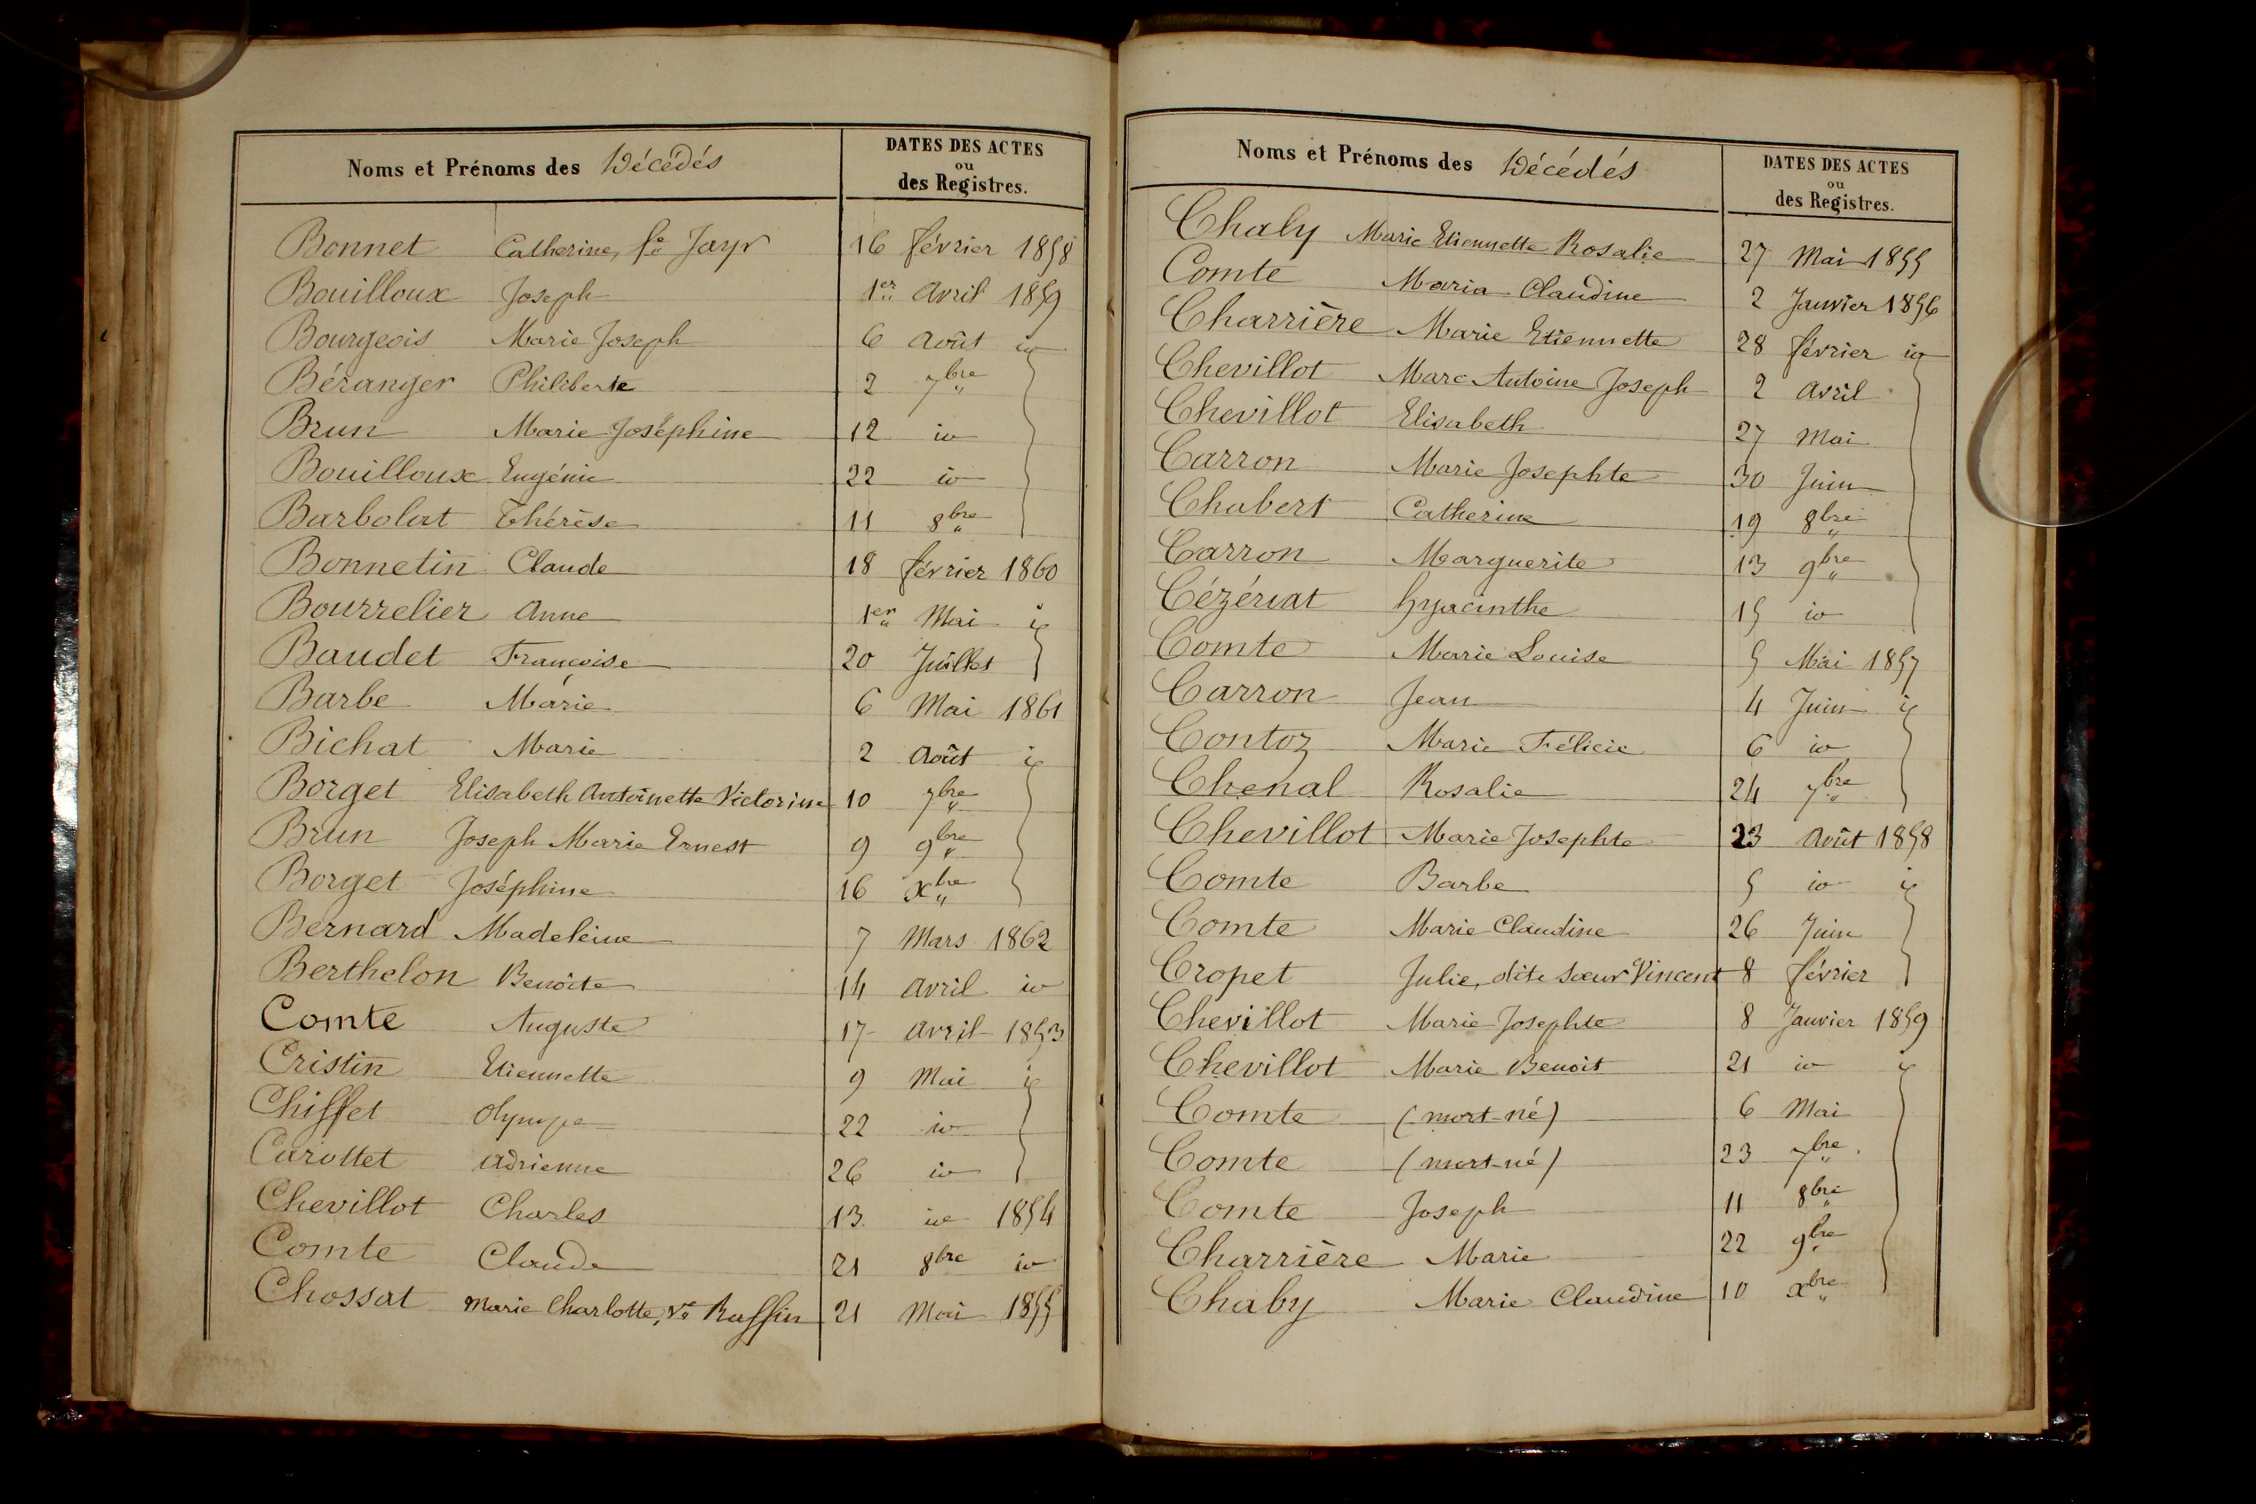 Noms et Prénoms des Décédés
DATES DES ACTES
ou
des Registres.
Bonnet Catherine, fe Jayr 16 février 1858
Bouilloux Joseph 1er avril 1859
Bourgeois Marie Joseph 6 août io
Béranger Philiberte 2 7bre
Brun Marie Joséphine 12 io
Bouilloux Eugénie 22 io
Barbolat Thérèse 11 8bre
Bonnetin Claude 18 février 1860
Bourrelier Anne 1er Mai io
Baudet Françoise 20 Juillet
Barbe Marie 6 Mai 1861
Bichat Marie 2 août io
Borget Elisabeth Antoinette Victorine 10 7bre
Brun Joseph Marie Ernest 9 9bre
Borget Joséphine 16 xbre
Bernard Madeleine 7 Mars 1862
Berthelon Benoite 14 avril io
Comte Auguste 17 avril 1853
Cristin Etiennette 9 Mai io
Chiffet Olympe 22 io
Carottet Adrienne 26 io
Chevillot Charles 13 io 1854
Comte Claude 21 8bre io
Chossat Marie Charlotte, ve Ruffin 21 Mai 1855
Noms et Prénoms des Décédés
DATES DES ACTES
ou
des Registres.
Chaly Marie Etiennette Rosalie 27 Mai 1855
Comte Maria Claudine 2 Janvier 1856
Charrière Marie Etiennette 28 février io
Chevillot Marc Antoine Joseph 2 avril
Chevillot Elisabeth 27 Mai
Carron Marie Josephte 30 Juin
Chabert Catherine 19 8bre
Carron Marguerite 13 9bre
Cézériat hyacinthe 15 io
Comte Marie Louise 5 Mai 1857
Carron Jean 4 Juin io
Contoz Marie Félicie 6 io
Chenal Rosalie 24 7bre
Chevillot Marie Josephte 23 Août 1858
Comte Barbe 5 io io
Comte Marie Claudine 26 Juin
Cropet Julie, dite sœur Vincent 8 février
Chevillot Marie Josephte 8 Janvier 1859
Chevillot Marie Benoit 21 io io
Comte (mort-né) 6 Mai
Comte (mort-né) 23 7bre
Comte Joseph 11 8bre
Charrière Marie 22 9bre
Chaby Marie Claudine 10 xbre